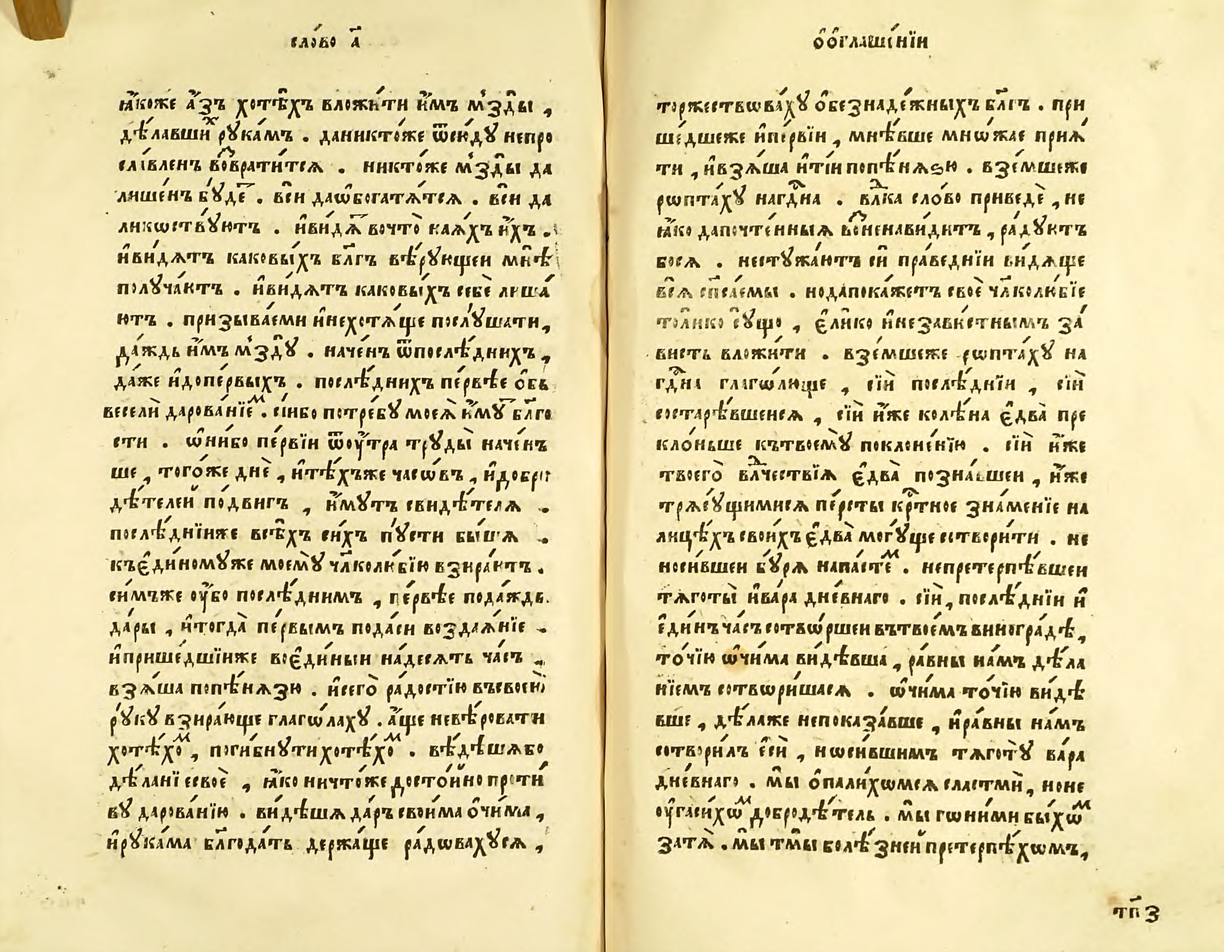 сло́во а҃
ꙗ҆́коже а҆́зъ хотѣ́хъ вложи́ти и҆̀мъ мъзды̀ ,
дѣ́лавшиⷯ рꙋка́мъ . даникто́же ѿсю́дꙋ непро
сла́вленъ возврати́тсѧ . никто́же мъзды̀ да
лише́нъ бꙋ́деⷮ . всѝ даѡ҆богатѧ́тсѧ . всѝ да
ликѡствꙋ́ютъ . и҆ви́дѧⷮ вочто̀ каѧ́хъ и҆́хъ .
и҆ви́дѧтъ каковы́хъ бл҃гъ вѣ́рꙋющеи мнѣ̀
полꙋча́ютъ . и҆ви́дѧтъ каковы́хъ себѐ лиша́
ютъ . призыва́еми и҆нехотѧ́ще послꙋ́шати ,
да́ждь и҆̀мъ мъздꙋ̀ . наче́нъ ѿпослѣ́днихъ ,
да́же и҆допе́рвыхъ . послѣ́днихъ пе́рвѣе о҆бь
весели̑ дарова́нїеⷨ . сі́ибо потре́бꙋ моеѧ̀ и҆́мꙋⷮ бл҃го
сти . ѡ҆ни́бо пе́рвїи ѿоу҆́тра трꙋды̀ наче́нъ
ше , того́же днѐ , и҆тѣ́хъже часѡ́въ , и҆добри̑
дѣ́телей по́двигъ , и҆́мꙋтъ свидѣ́телѧ .
послѣ́днїиже всѣ́хъ си́хъ пꙋ́сти бы́ша .
къє҆ди́номꙋже моемꙋ̀ чл҃колю́бїю взира́ютъ .
си́мъже оу҆́бо послѣ́днимъ , пе́рвѣе пода́ждь .
да́ры , и҆тогда̀ пе́рвымъ пода́си воздаѧ́нїе .
и҆прише́дшїиже воє҆ди́ныи на́десѧть ча́съ ,
взѧ́ша попѣ́нѧзю . и҆сего̀ ра́достїю въсвоєю̀
рꙋ́кꙋ взира́юще глаго́лахꙋ . а҆́ще невѣ́ровати
хотѣ́хоⷨ , поги́бнꙋтихотѣ́хоⷨ . вѣ́дѣшѧбо
дѣ́ланїе своѐ , ꙗ҆́ко ничто́же досто́йно про́ти
вꙋ дарова́нїю . ви́дѣшѧ да́ръ свои́ма о҆чи́ма ,
и҆рꙋка́ма бл҃года́ть держа́ще ра́довахꙋсѧ ,
ѻ҆ѻ҆глаше́нїи
торжествова́хꙋ о҆безнаде́жныхъ бл҃гъ . при
ше́дшеже и҆пе́рвїи , мнѣ́вше мно́жае прїѧ́
ти , и҆взѧ́ша и҆ті́и попѣ́нѧзю . взе́мшеже
ропта́хꙋ наг҃дна . влⷣка сло́во приведѐ , не
ꙗ҆́ко дапочте́нныѧ возненави́дитъ , ра́дꙋютъ
босѧ . нестꙋжа́ютъ сѝ пра́веднїи ви́дѧще
всѧ̀ сп҃са́емы . нодапока́жетъ своѐ чл҃колю́бїе
толи́ко сꙋ́що , є҆ли́ко и҆незави́стнымъ за́
висть вложи́ти . взе́мшеже ропта́хꙋ на
г҃дна глаго́люще , сі́й послѣ́днїи , сі́й
состарѣ́вшеисѧ , сі́й и҆́же колѣ́на є҆два̀ пре
кло́ньше къ твоемꙋ̀ поклоне́нїю . сі́й и҆́же
твоего̀ влⷣчествїѧ є҆два̀ позна́вшеи , и҆́же
трѧсꙋ́щимисѧ пе́рсты крⷭ҇тное зна́менїе на
ли́цѣхъ свои́хъ є҆два̀ могꙋ́ще сътвори́ти . не
носи́вшеи бꙋ́рѧ напа́стеⷨ . непретерпѣ́вшеи
тѧготы̀ и҆ва́ра дне́внаго . сі́й , послѣ́днїи и҆
є҆ди́нъ ча́съ сотво́ршеи въ твое́мъ виногра́дѣ ,
то́чїю ѡ҆чи́ма ви́дѣвша , равны̀ на́мъ дѣ́ла
нїемъ сотвори́шасѧ . ѡ҆чи́ма то́чїю ви́дѣ
вше , дѣ́лаже непоказа́вше , и҆ра́вны на́мъ
сотвори́лъ є҆сѝ , носи́вшимъ тѧготꙋ̀ ва́ра
дне́внаго . мы̀ о҆пали́хѡмсѧ сластмѝ , ноне
оу҆гаси́хѡⷨ добродѣ́тель . мы̀ гони́ми бы́хѡⷨ
затѧ̀ . мы̀ тмы̀ болѣ́зней претерпѣ́хѡмъ ,
тп҃з